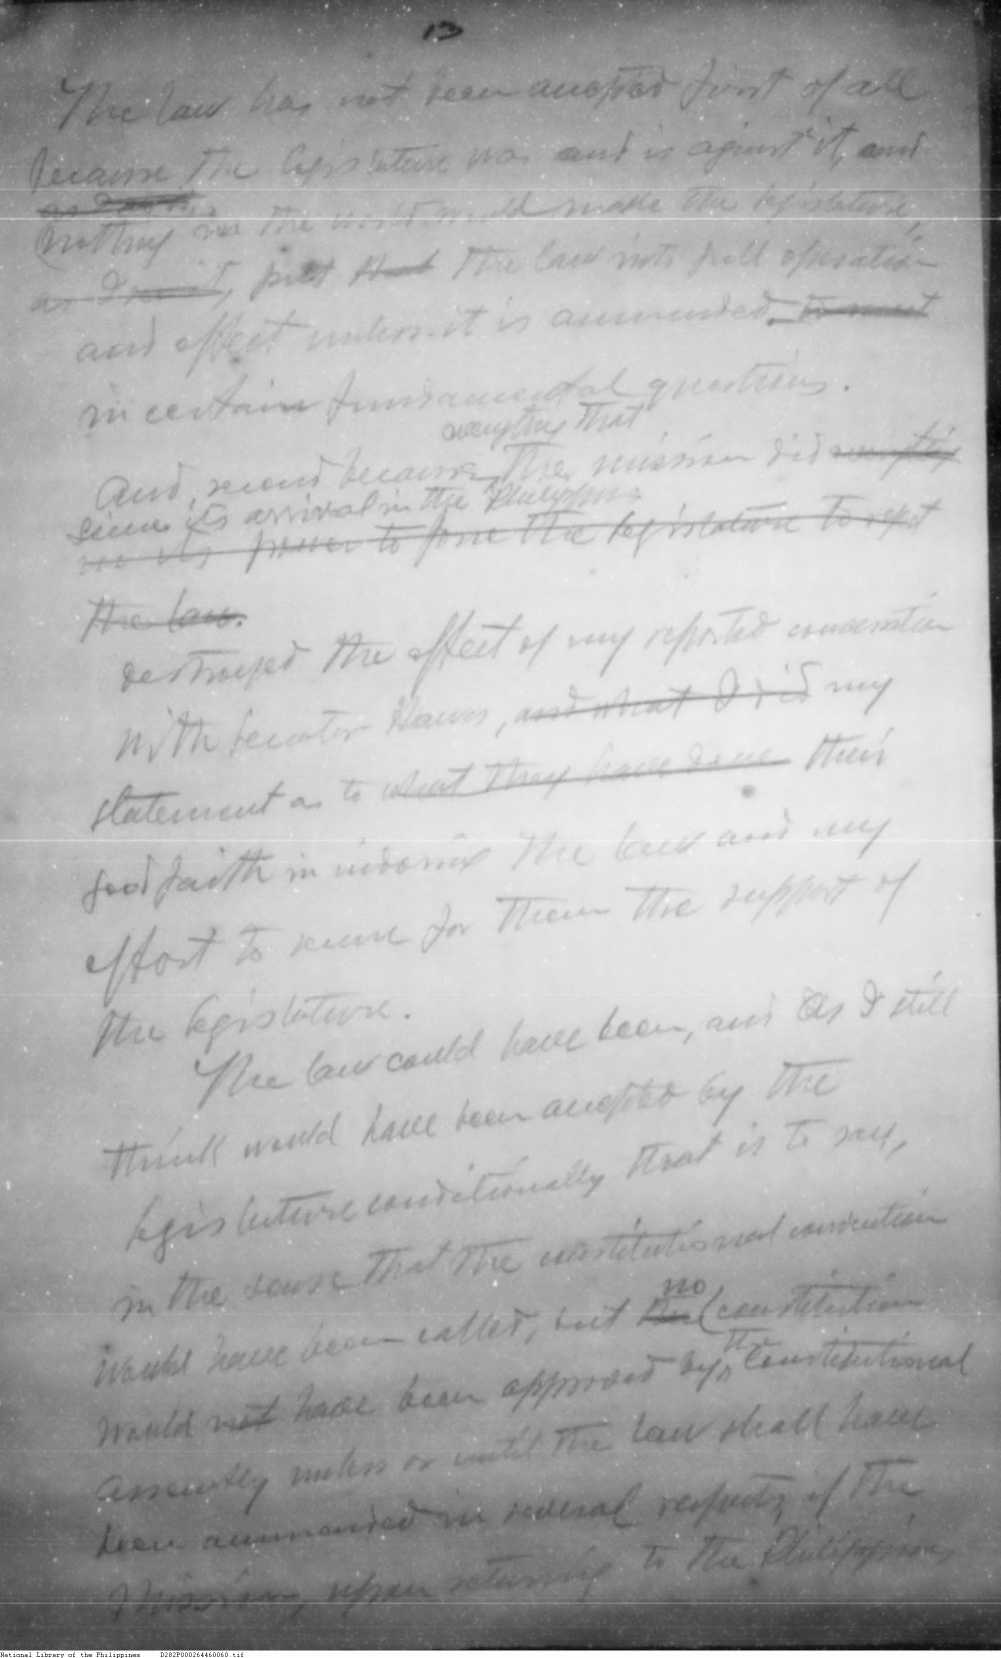 13
The law has not been accepted first of all
because the legislature was and is against it, and
nothing in the world would make the legislature,
as I said, put that the law into full operation
and effect unless it is ammended to meet
in certain fundamental questions.
everything that
And, second because, the mission did everything
since its arrival in the Philippines
in its power to force the legislature to reject
the law.
destroyed the effect of my reported conversation
with Senator Hawes, and what I did my
statement as to what they have done their
good faith in indorsing the law and my
effort to secure for them the support of
the legislature.
The law could have been, and as I still
think would have been accepted by the
legislature conditionally that is to say,
in the sense that the constitutional convention
would have been called, but no
the (constitution
would not have been approved by the Constitutional
assembly unless or until the law shall have
been ammended in several respects, if the
Mission, upon returning to the Philippines
National Library of the Philippines D282P000264460060.tif